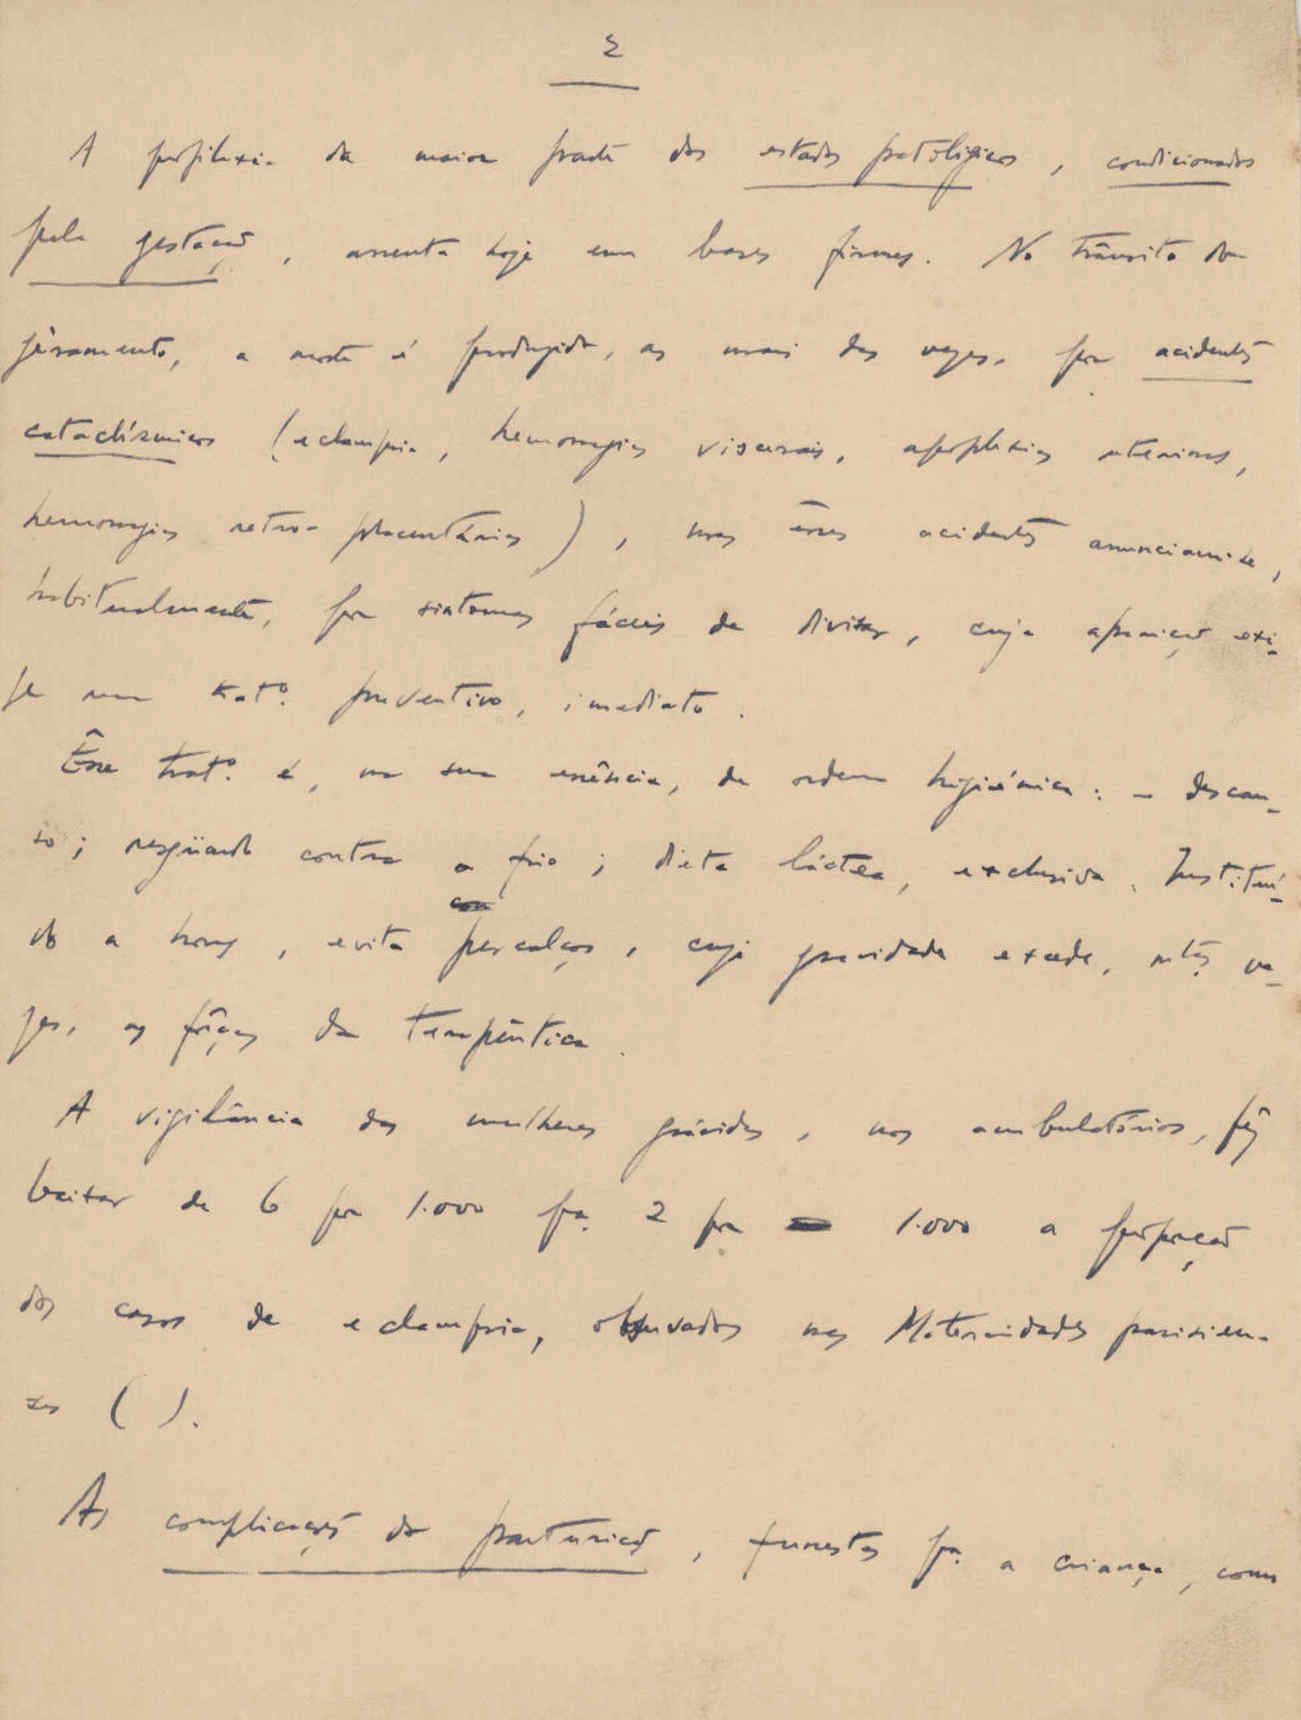 2
A profilaxia da maior parte dos estados patológicos, condicionados
pela gestação, assenta hoje em bases firmes. No trânsito do
geramento, a morte é produzida, as mais das vezes, por acidentes
cataclísmicos (eclampsia, hemorragias viscerais, apoplexias uterinas,
hemorragias retro-placentárias), mas êsses acidentes anunciam-se,
habitualmente, por sintomas fáceis de divisar, cuja aparição exi-
ge um trat.º preventivo, imediato.
Êsse trat.º é, na sua essência, de ordem higiénica: - descan-
so; resgüardo contra o frio; dieta láctea, exclusiva. Instituí-
do a horas, evita percalços, cuja gravidade excede, mtas ve-
zes, as fôrças da terapêutica.
A vigilância das mulheres grávidas, nos ambulatórios, fêz
baixar de 6 por 1.000 pa. 2 por 1.000 a proporção
dos casos de eclampsia, observados nas Maternidades parisien-
ses ( ).
As complicações da parturição, funestas pa. a criança, como